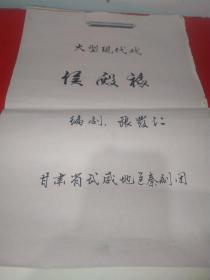 大型现代戏
侯殿禄
编剧：张发仁
甘肃省武威地区秦剧团